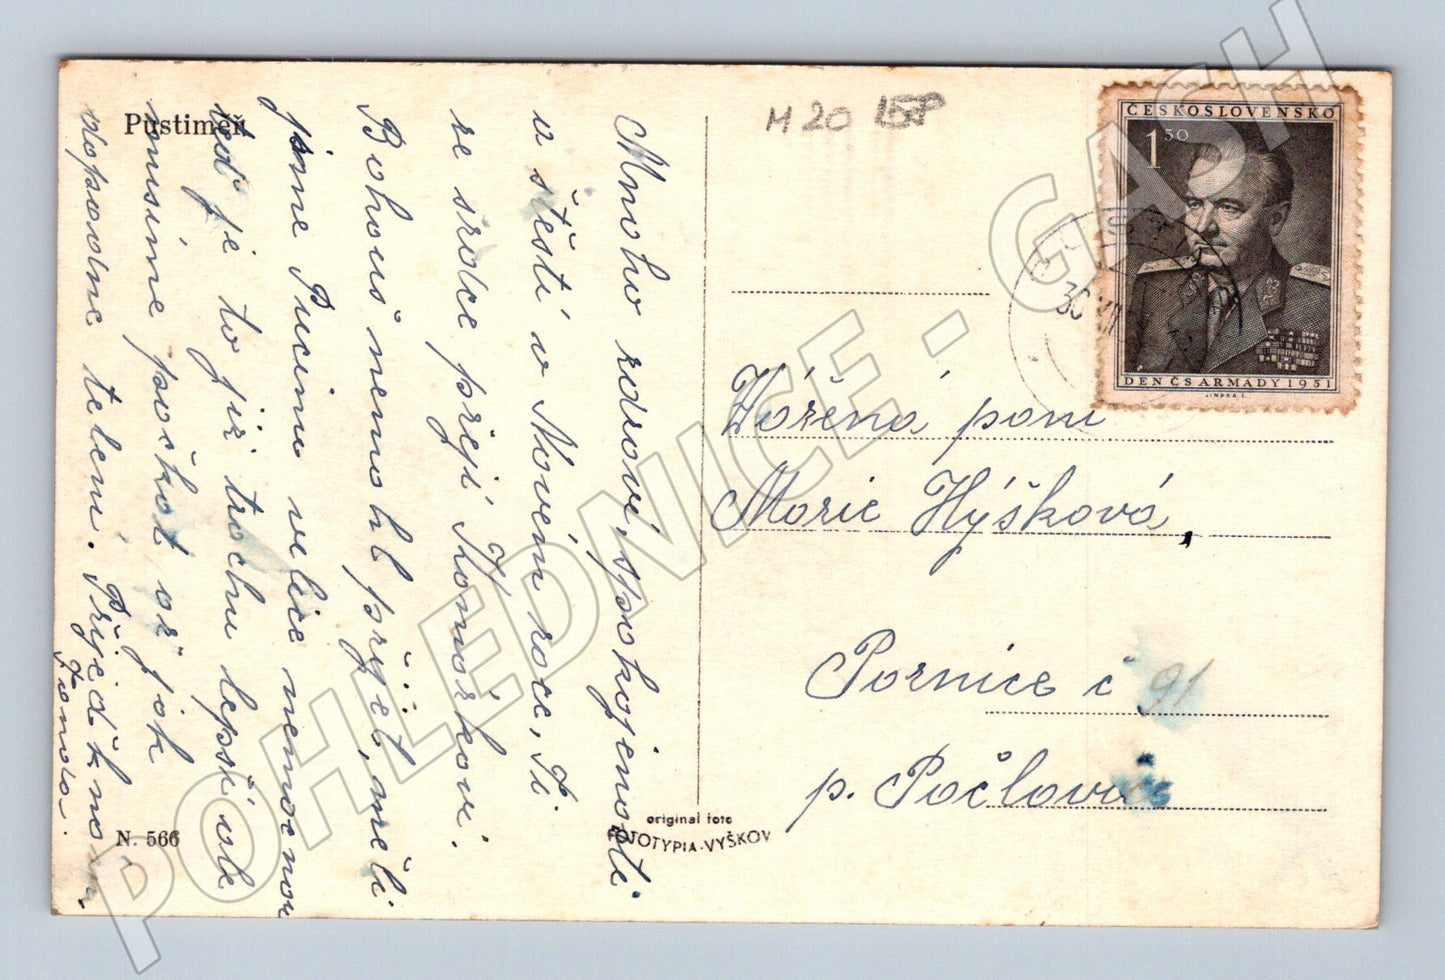 Pustiměř
M 20
ČESKOSLOVENSKO
1 50
DEN ČS ARMADY 1951
JINDRA I.
30 XII
Mnoho zdroví, spokojenosti
a štestí v Novém roce, Ti
ze srdce přejí Komárkovi.
Bohouš nemohl přijet, měli
jsme Pucinu velice nemocnou
teď je to již trochu lepší ale
musíme počkat až jak
dopadne telení. Přijeď k nám
Fanda.
Vážená paní
Marie Hýšková,
Pornice č 91
p. Počlova
N. 566
original foto
FOTOTYPIA-VYŠKOV
POHLEDNICE - GASH